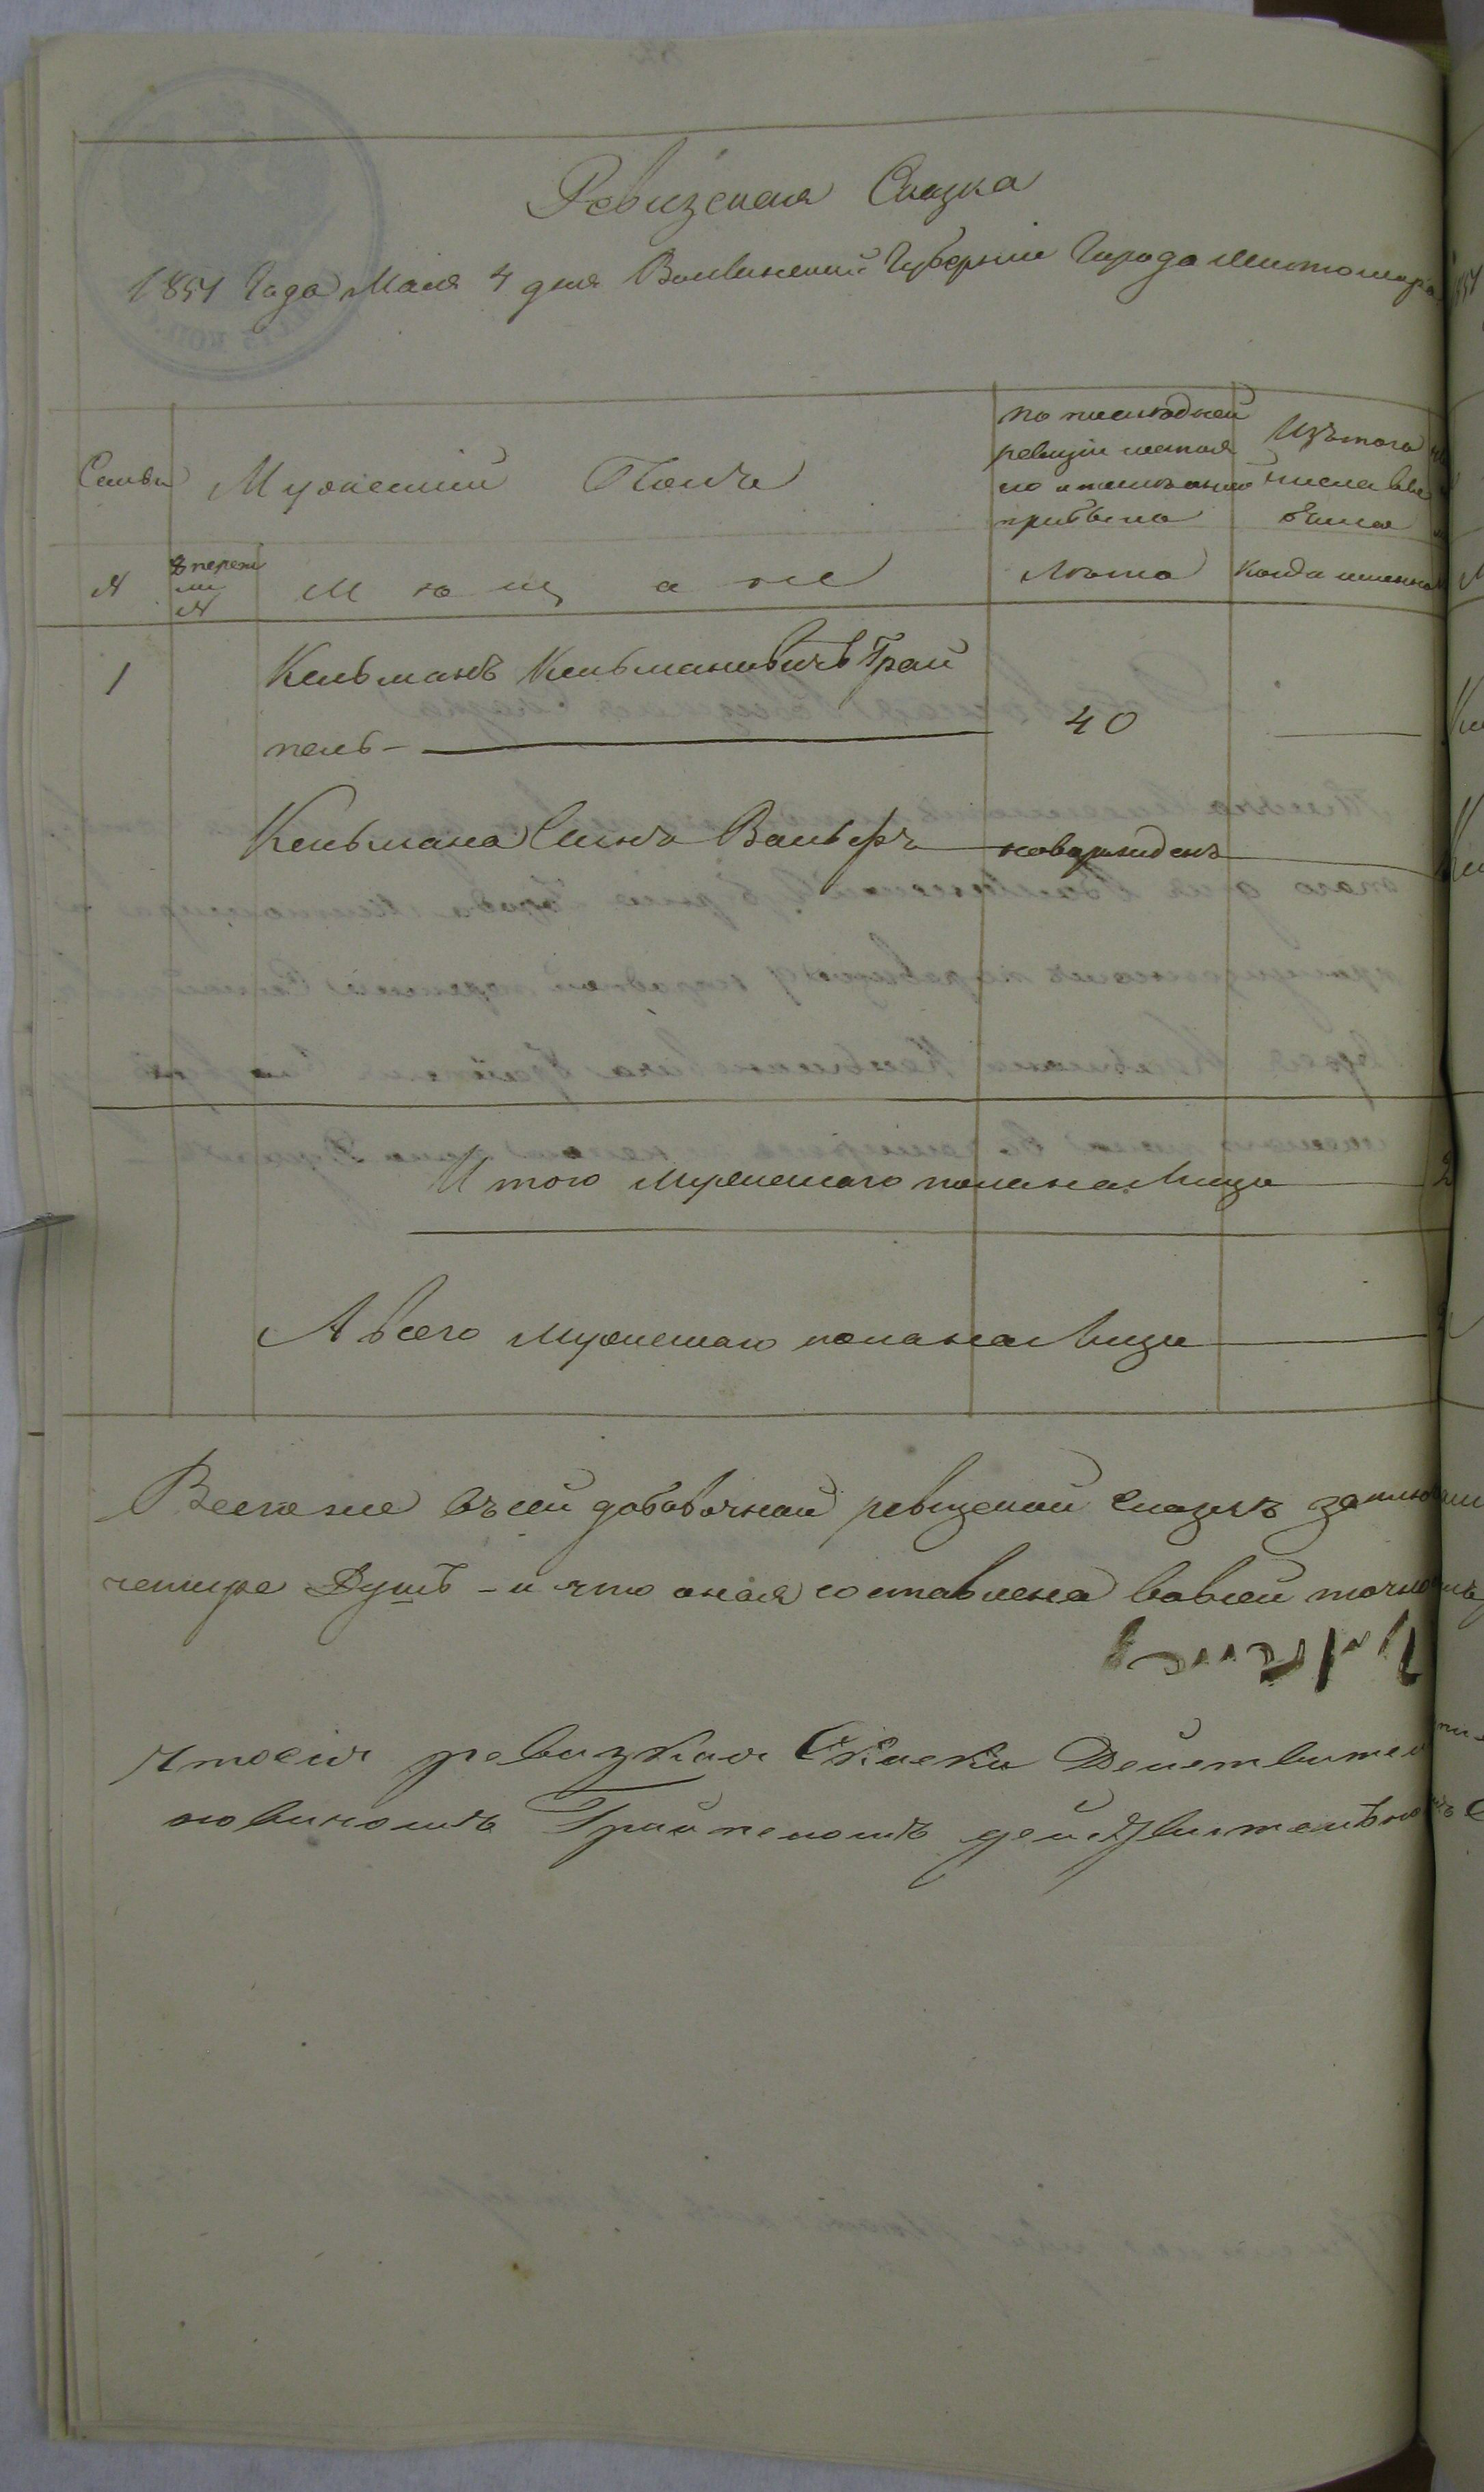 Ревизская Сказка
1851 Года Маия 4 дня Волынской Губернии Города Житомира
Семьи
Мужеский Полъ
по последней
ревизии состоя
ло и после оной
прибыло
Изъ того
числа вы
было
№
№
М ѣ щ а не
Лѣта
Когда именно
1
Кельманъ Кельмановичъ Грай
пель —
40
Кельмана Сынъ Вольфъ
новорожденъ
Итого мужескаго пола на лицо
2
А всего мужескаго пола на лицо
Всего же въ сей добавочной ревизской сказкѣ
четыре Душъ – и что оная составлена во всей
что сия ревизкая Скаска
Грайпеломъ